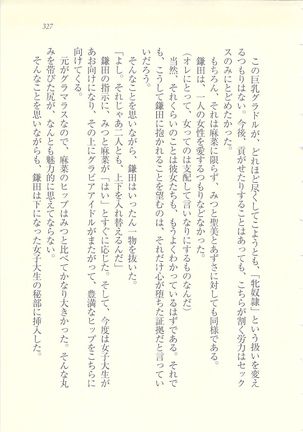 327
この巨乳グラドルが、どれほど尽くしてこようとも、「牝奴隷」という扱いを変え
るつもりはない。今後、貢がせたりすることはあっても、こちらが割く労力はセック
スのみにとどめたかった。
もちろん、それは麻菜に限らず、みつと聖美とあずさに対しても同様である。
鎌田は、一人の女性を愛するつもりなどなかった。
（オレにとって、女ってのは支配して言いなりにするものなんだ）
当然、それくらいのことは彼女たちも、もうよくわかってはずである。それで
も、こうして鎌田に抱かれることを望むのは、それだけ心が堕ちた証拠だと言ってい
いだろう。
そんなことを思いながら、鎌田はいったん一物を抜いた。
「よし。それじゃあ二人とも、上下を入れ替えるんだ」
鎌田の指示に、みつと麻菜が「はい」とすぐに応じた。そして、今度は女子大生が
あお向けになり、その上にグラビアアイドルがまたがって、豊満なヒップをこちらに
向けてくる。
元がグラマラスなので、麻菜のヒップはみつと比べてかなり大きかった。そんな丸
みを帯びた尻が、なんとも魅力的に思えてならない。
そんなことを思いながらも、鎌田は下になった女子大生の秘部に挿入した。